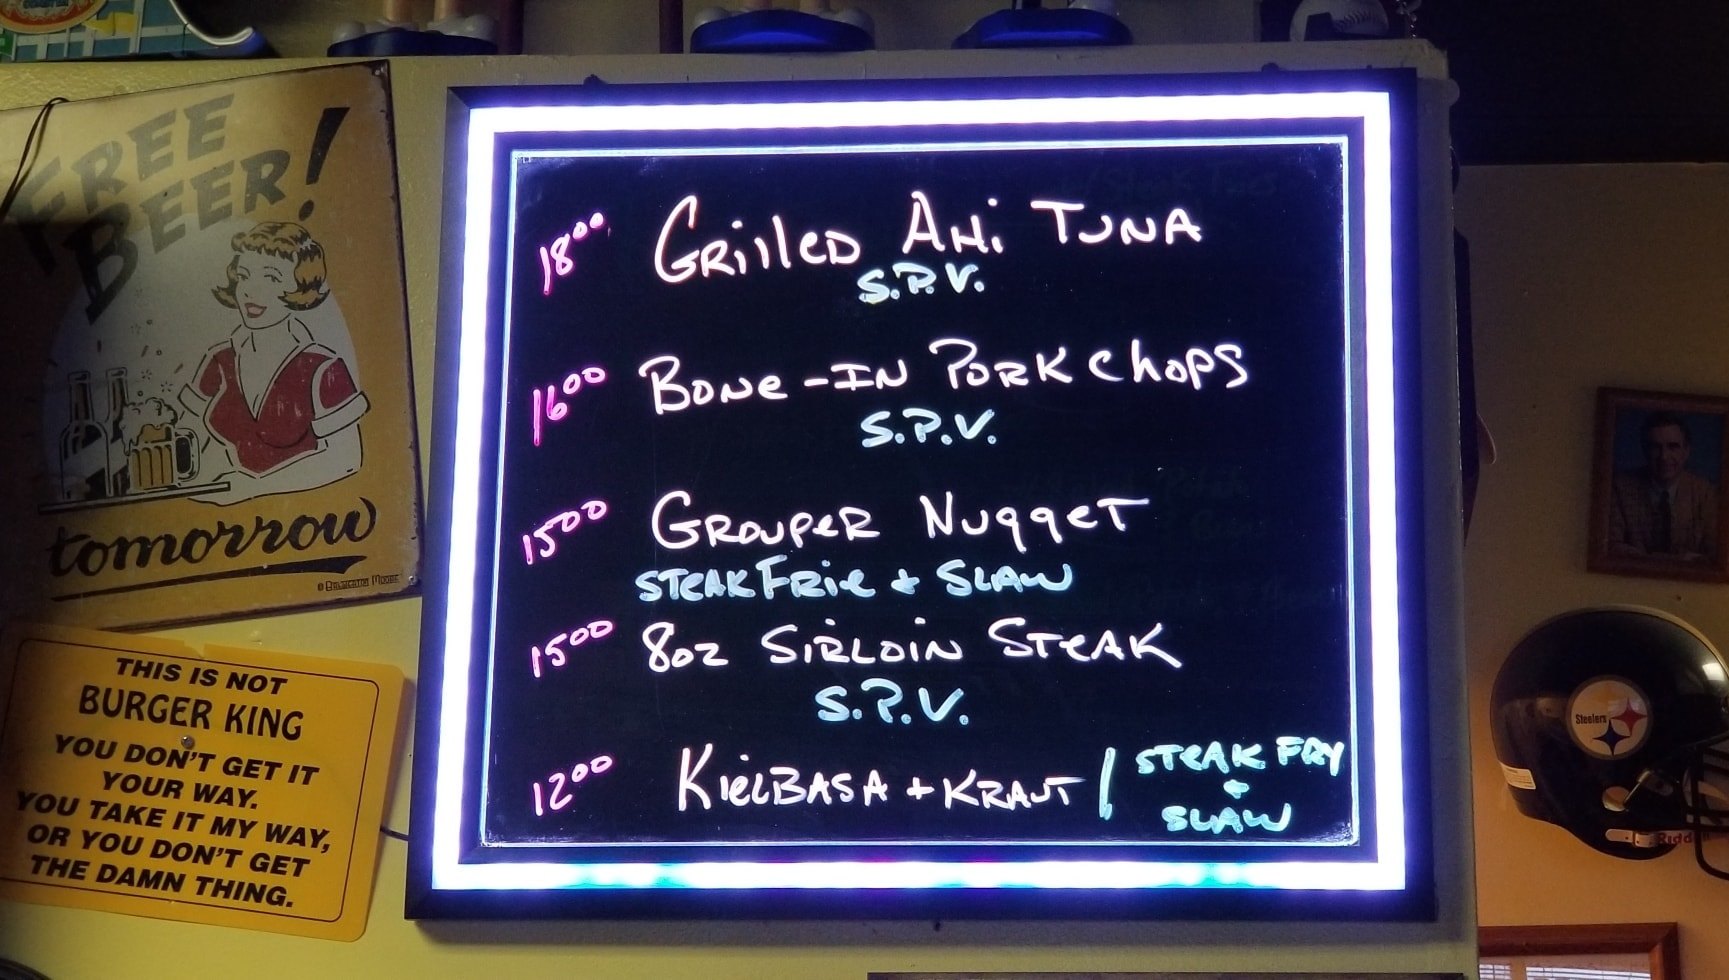 FREE
BEER!
tomorrow
THIS IS NOT
BURGER KING
YOU DON'T GET IT
YOUR WAY.
YOU TAKE IT MY WAY,
OR YOU DON'T GET
THE DAMN THING.
18⁰⁰ GRillED AHi TUNA
S.P.V.
16⁰⁰ BONe-IN PORK CHOPS
S.P.V.
15⁰⁰ GROUPeR NuggeT
STEAK FRie + SLAW
15⁰⁰ 8oz SiRLOiN STeAK
S.P.V.
12⁰⁰ KielBASA + KRAUT / STEAK FRY
+
SLAW
Steelers